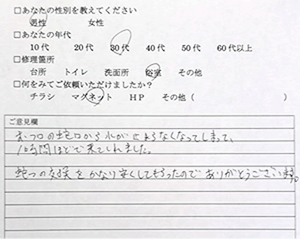 □あなたの性別を教えてください
男性 女性
□あなたの年代
10代 20代 30代 40代 50代 60代以上
□修理箇所
台所 トイレ 洗面所 浴室 その他
□何をみてご依頼いただけましたか?
チラシ マグネット HP その他( )
ご意見欄
の蛇口から水がでなくなってしまって、
10時間ほどで来てくれました。
をかなり安くしてもらったのでありがとうございます。